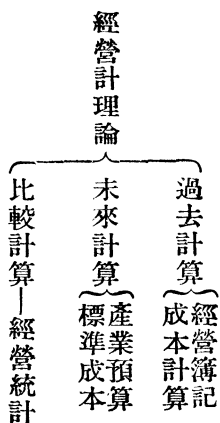 經營計理論
過去計算
經營簿記
成本計算
未來計算
產業預算
標準成本
比較計算—經營統計